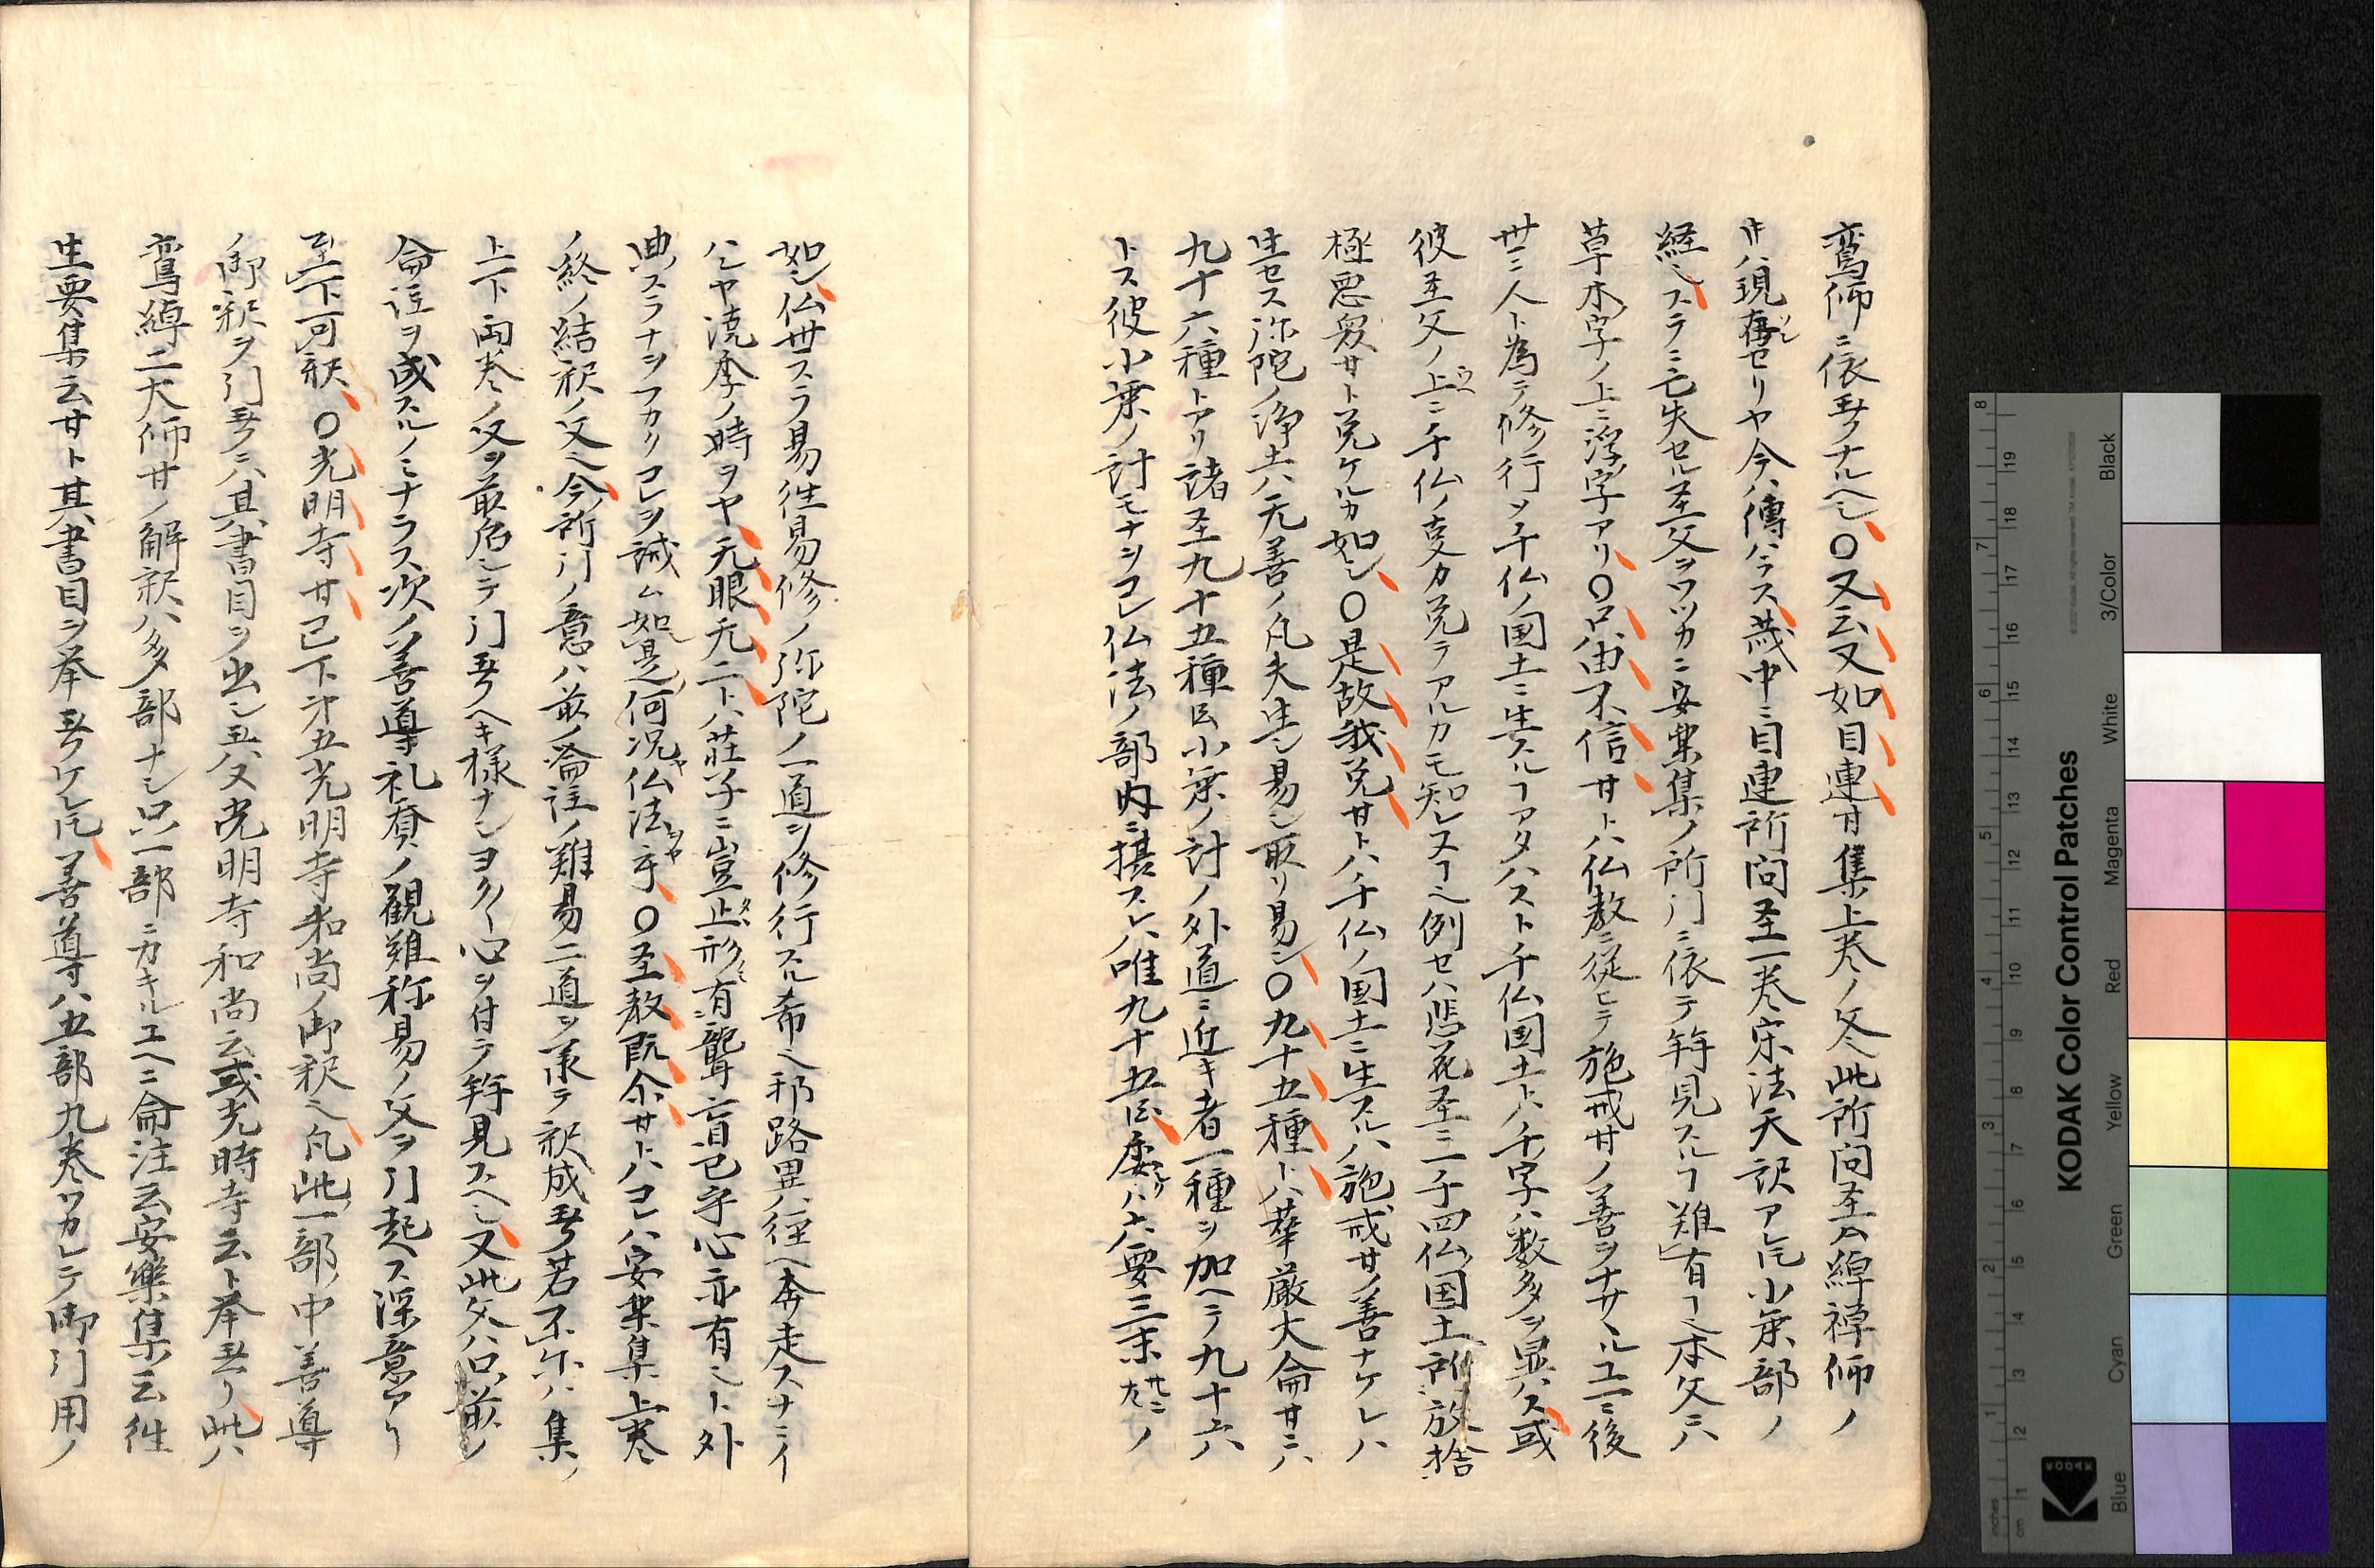 鸞師ニ依玉フナルヘシ〇又云又如目連廿集上巻ノ文此所問圣ハ綽禅師ノ
時ハ現在セリヤ今ハ傳ハラス蔵中ニ目連所問圣一巻宋法天訳アレ𪜈小乗部ノ
経ニスラニ亡失セル圣文ヲワツカニ安楽集ノ所引ニ依テ拜見スルヿ難有ヿ本文ニハ
草木字ノ上ニ浮字アリ〇只由不信廿トハ仏教ニ従ヒテ施戒廿ノ善ヲナサヽルユヱニ後
世ニ人ト為テ修行メ千仏ノ国土ニ生スルヿアタハスト千仏国土トハ千字ハ数多ヲ显ハス或
彼圣文ノ上ニ千仏ノ夏カ説テアルカモ知レヌヿ例セハ悲花圣ニ一千四仏国土所放捨
極悪众廿ト説ケルカ如シ〇是故我説廿トハ千仏ノ国土ニ生スルハ施戒廿ノ善ナケレハ
生セス弥陀ノ浄土ハ无善ノ凡夫生シ易シ取リ易シ〇九十五種トハ華厳大侖廿ニハ
九十六種トアリ諸圣九十五種𪜈小乗ノ計ノ外道ニ近キ者一種ヲ加ヘテ九十六
トス彼小乗ノ計モナヲコレ仏法ノ部内ニ摂スレハ唯九十五𪜈委クハ六要三末廿二左ノ
如シ仏世スラ易徃易修ノ弥陀ノ一道ヲ修行スル希邪路異径ヘ奔走スナニイ
ハンヤ澆季ノ時ヲヤ无眼无二トハ荘子ニ豈止形有聾盲已乎心亦有之ト外
典スラナヲフカクコレヲ誡ム如是何況ヤ仏法ヲヤ乎〇圣教既尒廿トハコレハ安楽集上巻
ノ終ノ結釈ノ文今所引ノ意ハ前ノ侖註ノ難易二道ヲ承テ釈成玉フ若不尓ハ集ノ
上下両巻ノ文ヲ前后シテ引玉フヘキ様ナシヨク〳〵心ヲ付テ拜見スヘシ又此文ハ只前ノ
侖註ヲ成スルノミナラス次ノ善導礼賛ノ観難称易ノ文ヲ引起ス深意アリ
至下可釈〇光明寺廿已下㐧五光明寺和尚ノ御釈凡此一部ノ中善導
ノ御釈ヲ引玉フニハ其書目ヲ出シ玉ハス光明寺和尚云或光明寺云ト挙玉リ此ハ
鸞綽二大師廿ノ解釈ハ多部ナシ只一部ニカキルユヘニ侖注云安樂集云徃
生要集云廿ト其書目ヲ挙玉ケレ𪜈善導ハ五部九巻ワカレテ御引用ノ
KODAK Color Control Patches
Black
3/Color
White
Magenta
Red
Yellow
Green
Cyan
Blue
KODAK